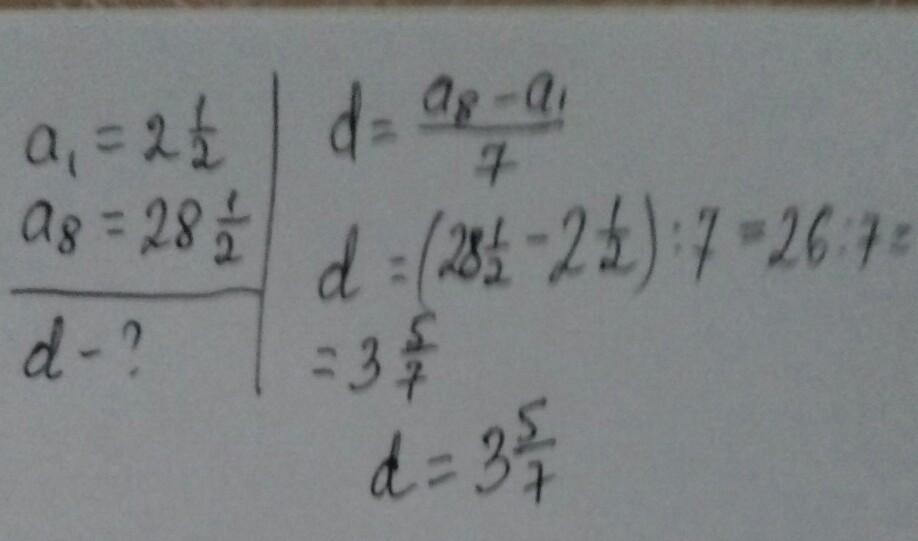 a₁ = 2 1/2
a₈ = 28 1/2
d - ?
d = (a₈ - a₁)/7
d = (28 1/2 - 2 1/2) : 7 = 26 : 7 =
= 3 5/7
d = 3 5/7